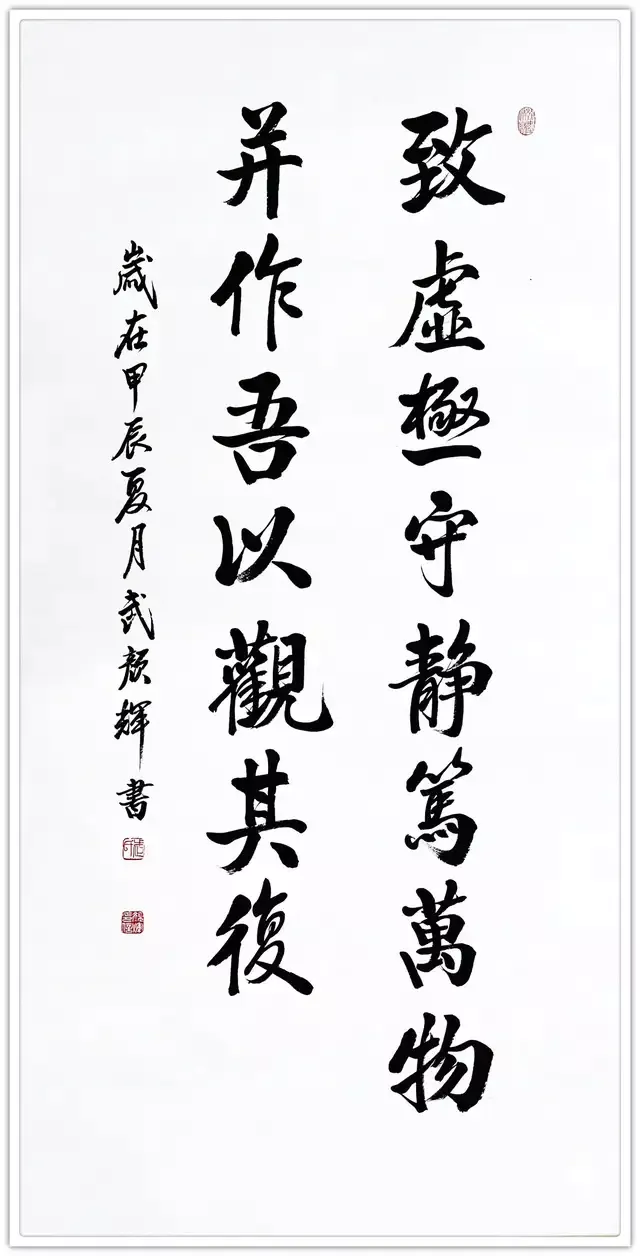 致虛極守静篤萬物
并作吾以觀其復
歲在甲辰夏月武颜輝書